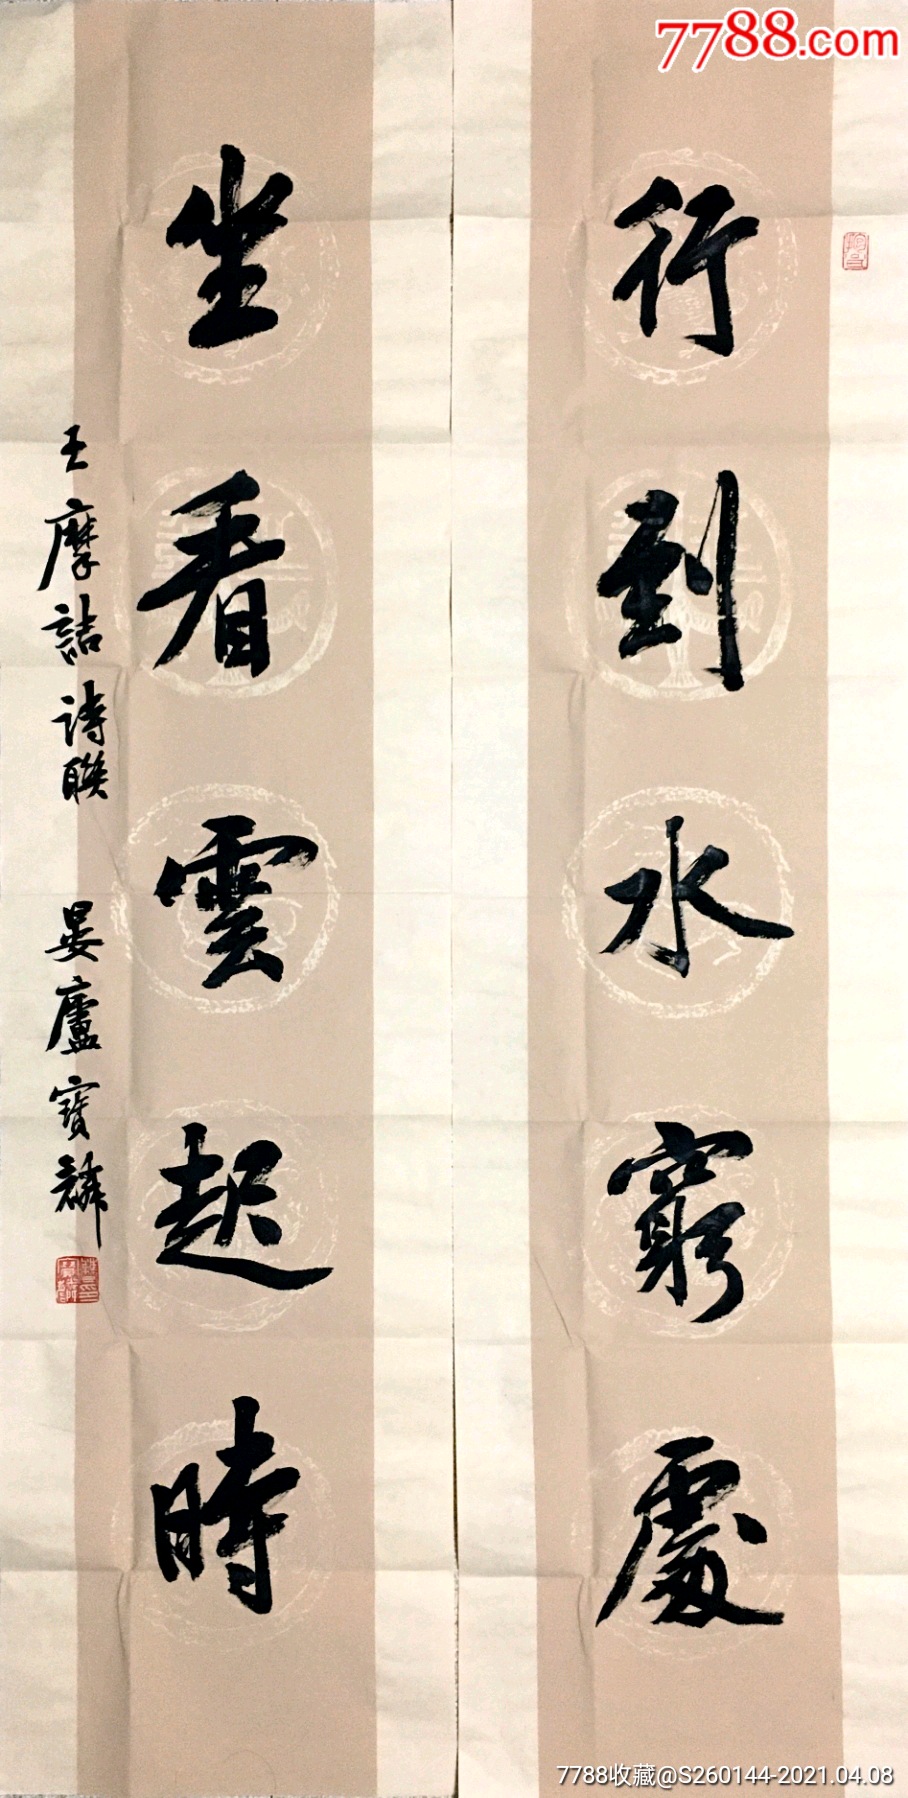 7788.com
行到水窮處
坐看雲起時
王摩詰詩聯 晏廬寶麟
7788收藏@S260144-2021.04.08